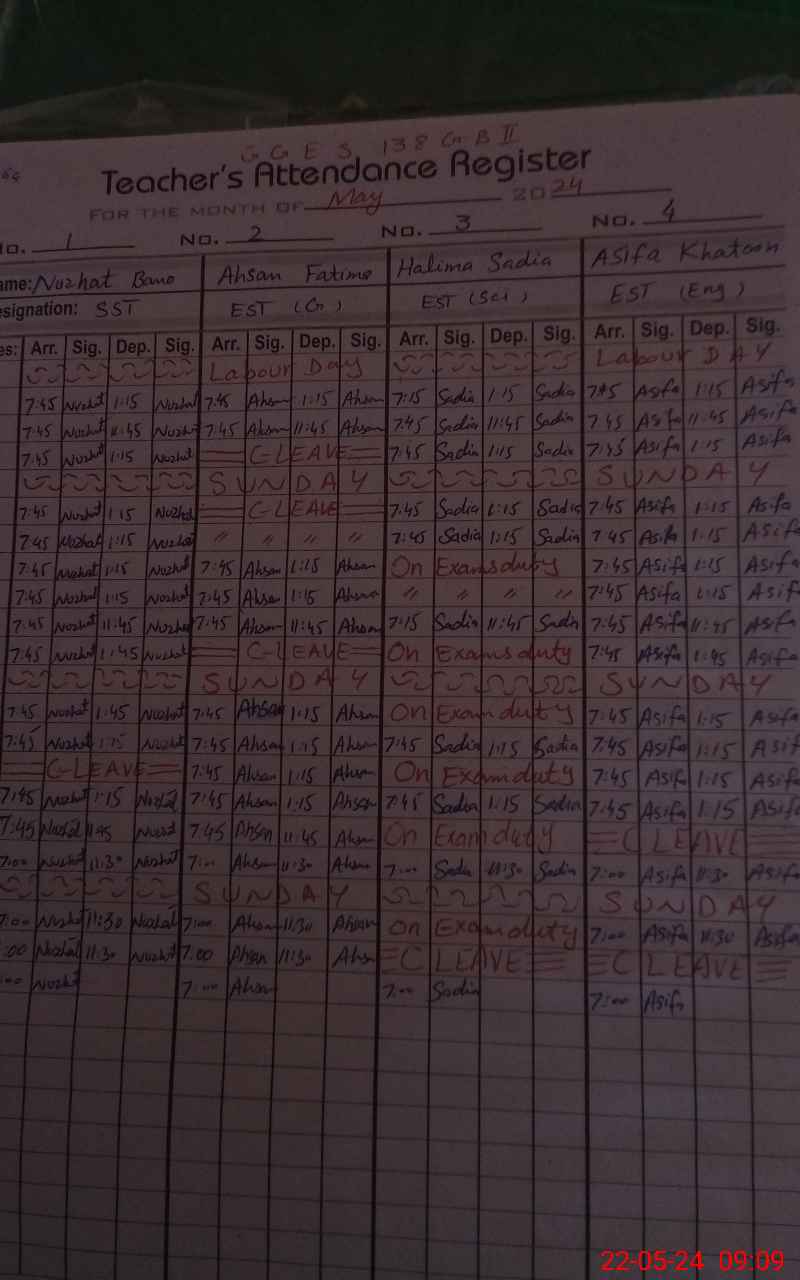 G G E S 138 G-B II
Teacher's Attendance Register
FOR THE MONTH OF May 2024
No. 1 No. 2 No. 3 No. 4
ame: Nuzhat Bano Ahsan Fatima Halima Sadia Asifa Khatoon
esignation: SST EST (G) EST (Sci) EST (Eng)
es: Arr. Sig. Dep. Sig. Arr. Sig. Dep. Sig. Arr. Sig. Dep. Sig. Arr. Sig. Dep. Sig.
Labour Day Labour DAY
7:45 Nuzhat 1:15 Nuzhat 7:45 Ahsan 1:15 Ahsan 7:15 Sadia 1:15 Sadia 7:45 Asifa 1:15 Asifa
7:45 Nuzhat 11:45 Nuzhat 7:45 Ahsan 11:45 Ahsan 7:45 Sadia 11:45 Sadia 7:45 Asifa 11:45 Asifa
7:45 Nuzhat 1:15 Nuzhat C-LEAVE 7:45 Sadia 1:15 Sadia 7:45 Asifa 1:15 Asifa
SUNDAY SUNDAY
7:45 Nuzhat 1:15 Nuzhat C-LEAVE 7:45 Sadia 1:15 Sadia 7:45 Asifa 1:15 Asifa
7:45 Nuzhat 1:15 Nuzhat " " " " 7:45 Sadia 1:15 Sadia 7:45 Asifa 1:15 Asifa
7:45 Nuzhat 1:15 Nuzhat 7:45 Ahsan 1:15 Ahsan On Exams duty 7:45 Asifa 1:15 Asifa
7:45 Nuzhat 1:15 Nuzhat 7:45 Ahsan 1:15 Ahsan " " " " 7:45 Asifa 1:15 Asifa
7:45 Nuzhat 11:45 Nuzhat 7:45 Ahsan 11:45 Ahsan 7:15 Sadia 11:45 Sadia 7:45 Asifa 11:45 Asifa
7:45 Nuzhat 1:45 Nuzhat C-LEAVE On Exams duty 7:45 Asifa 1:45 Asifa
SUNDAY SUNDAY
7:45 Nuzhat 1:45 Nuzhat 7:45 Ahsan 1:15 Ahsan On Exam duty 7:45 Asifa 1:15 Asifa
7:45 Nuzhat 1:15 Nuzhat 7:45 Ahsan 1:15 Ahsan 7:45 Sadia 1:15 Sadia 7:45 Asifa 1:15 Asif
C-LEAVE 7:45 Ahsan 1:15 Ahsan On Exam duty 7:45 Asifa 1:15 Asifa
7:45 Nuzhat 1:15 Nuzhat 7:45 Ahsan 1:15 Ahsan 7:45 Sadia 1:15 Sadia 7:45 Asifa 1:15 Asifa
7:45 Nuzhat 7:45 Ahsan 11:45 Ahsan On Exam duty C LEAVE
7:00 Nuzhat 11:30 Nuzhat 7:00 Ahsan 11:30 Ahsan 7:00 Sadia 11:30 Sadia 7:00 Asifa 11:30 Asifa
SUNDAY SUNDAY
7:00 Nuzhat 11:30 Nuzhat 7:00 Ahsan 11:30 Ahsan On Exam duty 7:00 Asifa 11:30 Asifa
:00 Nuzhat 11:30 Nuzhat 7:00 Ahsan 11:30 Ahsan C LEAVE C LEAVE
:00 Nuzhat 7:00 Ahsan 7:00 Sadia 7:00 Asifa
22-05-24 09:09